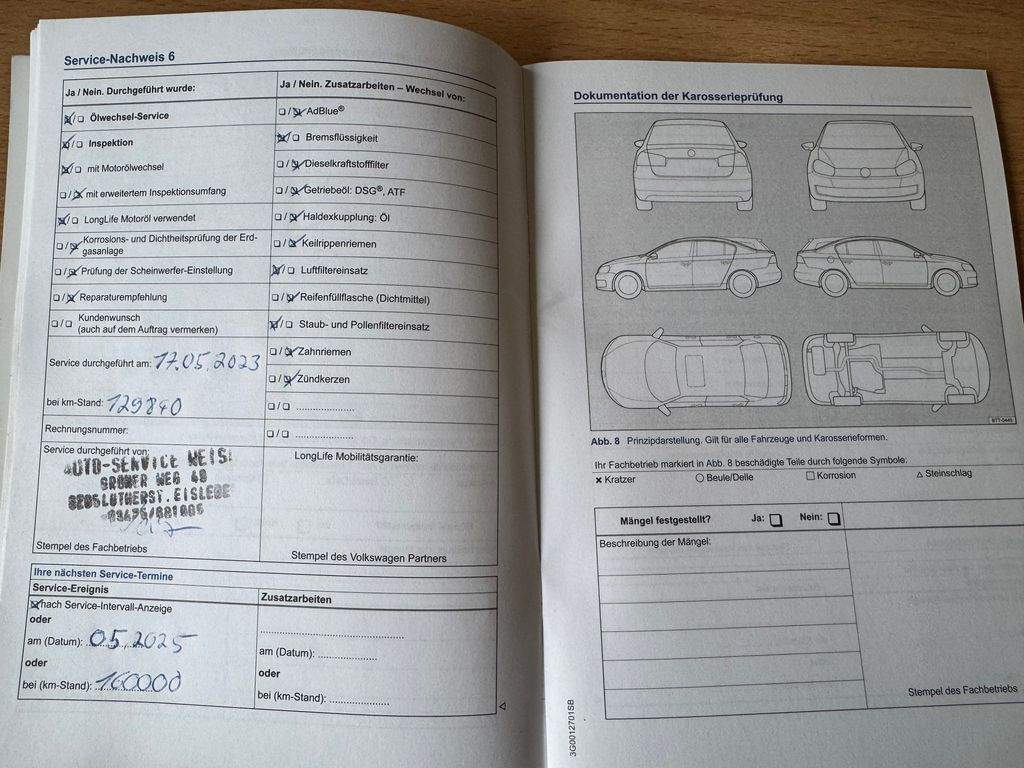 Service-Nachweis 6
Ja / Nein. Durchgeführt wurde:
Ölwechsel-Service
Inspektion
mit Motorölwechsel
mit erweitertem Inspektionsumfang
LongLife Motoröl verwendet
Korrosions- und Dichtheitsprüfung der Erd-
gasanlage
Prüfung der Scheinwerfer-Einstellung
Reparaturempfehlung
Kundenwunsch
(auch auf dem Auftrag vermerken)
Service durchgeführt am: 17.05.2023
bei km-Stand: 129840
Rechnungsnummer:
Service durchgeführt von:
AUTO-SERVICE
03475/681005
Stempel des Fachbetriebs
Ja / Nein. Zusatzarbeiten – Wechsel von:
AdBlue®
Bremsflüssigkeit
Dieselkraftstofffilter
Getriebeöl: DSG®, ATF
Haldexkupplung: Öl
Keilrippenriemen
Luftfiltereinsatz
Reifenfüllflasche (Dichtmittel)
Staub- und Pollenfiltereinsatz
Zahnriemen
Zündkerzen
LongLife Mobilitätsgarantie:
Stempel des Volkswagen Partners
Ihre nächsten Service-Termine
Service-Ereignis
nach Service-Intervall-Anzeige
oder
am (Datum): 05.2025
oder
bei (km-Stand): 160000
Zusatzarbeiten
am (Datum):
oder
bei (km-Stand):
Dokumentation der Karosserieprüfung
B7T-0449
Abb. 8 Prinzipdarstellung. Gilt für alle Fahrzeuge und Karosserieformen.
Ihr Fachbetrieb markiert in Abb. 8 beschädigte Teile durch folgende Symbole:
× Kratzer ○ Beule/Delle □ Korrosion △ Steinschlag
Mängel festgestellt? Ja: □ Nein: □
Beschreibung der Mängel:
Stempel des Fachbetriebs
3G0012701SB